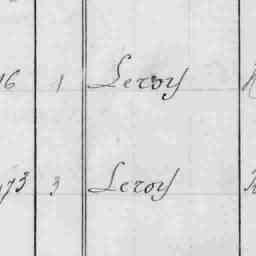 16 1 Leroy
473 3 Leroy